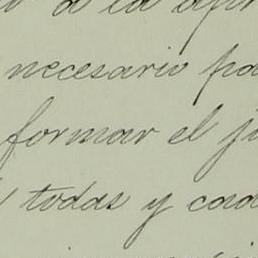 a la
necesario
formar el
todas y cada